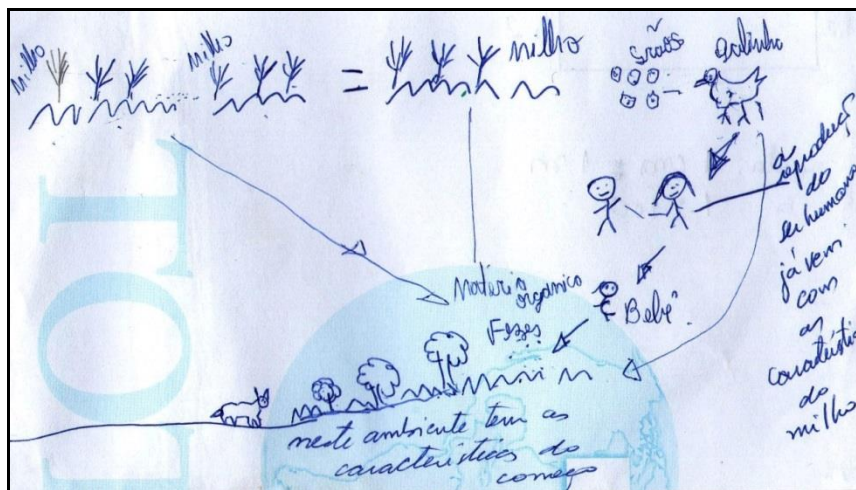 milho
milho
=
milho
grãos
galinha
a
reprodução
do
ser humano
já vem
com
as
característic
do
milho
matéria
orgânica
Fezes
Bebê
neste ambiente tem as
características do
começo
LOT